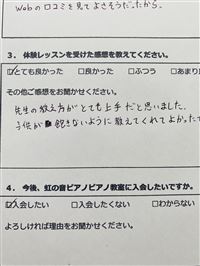 Webの口コミを見てよさそうだったから。
3. 体験レッスンを受けた感想を教えてください。
☑とても良かった □良かった □ふつう □あまり
その他ご感想をお聞かせください。
先生の教え方がとても上手だと思いました。
子供が飽きないように教えてくれてよかったで
4. 今後、虹の音ピアノピアノ教室に入会したいですか。
☑入会したい □入会したくない □わからない
よろしければ理由をお聞かせください。